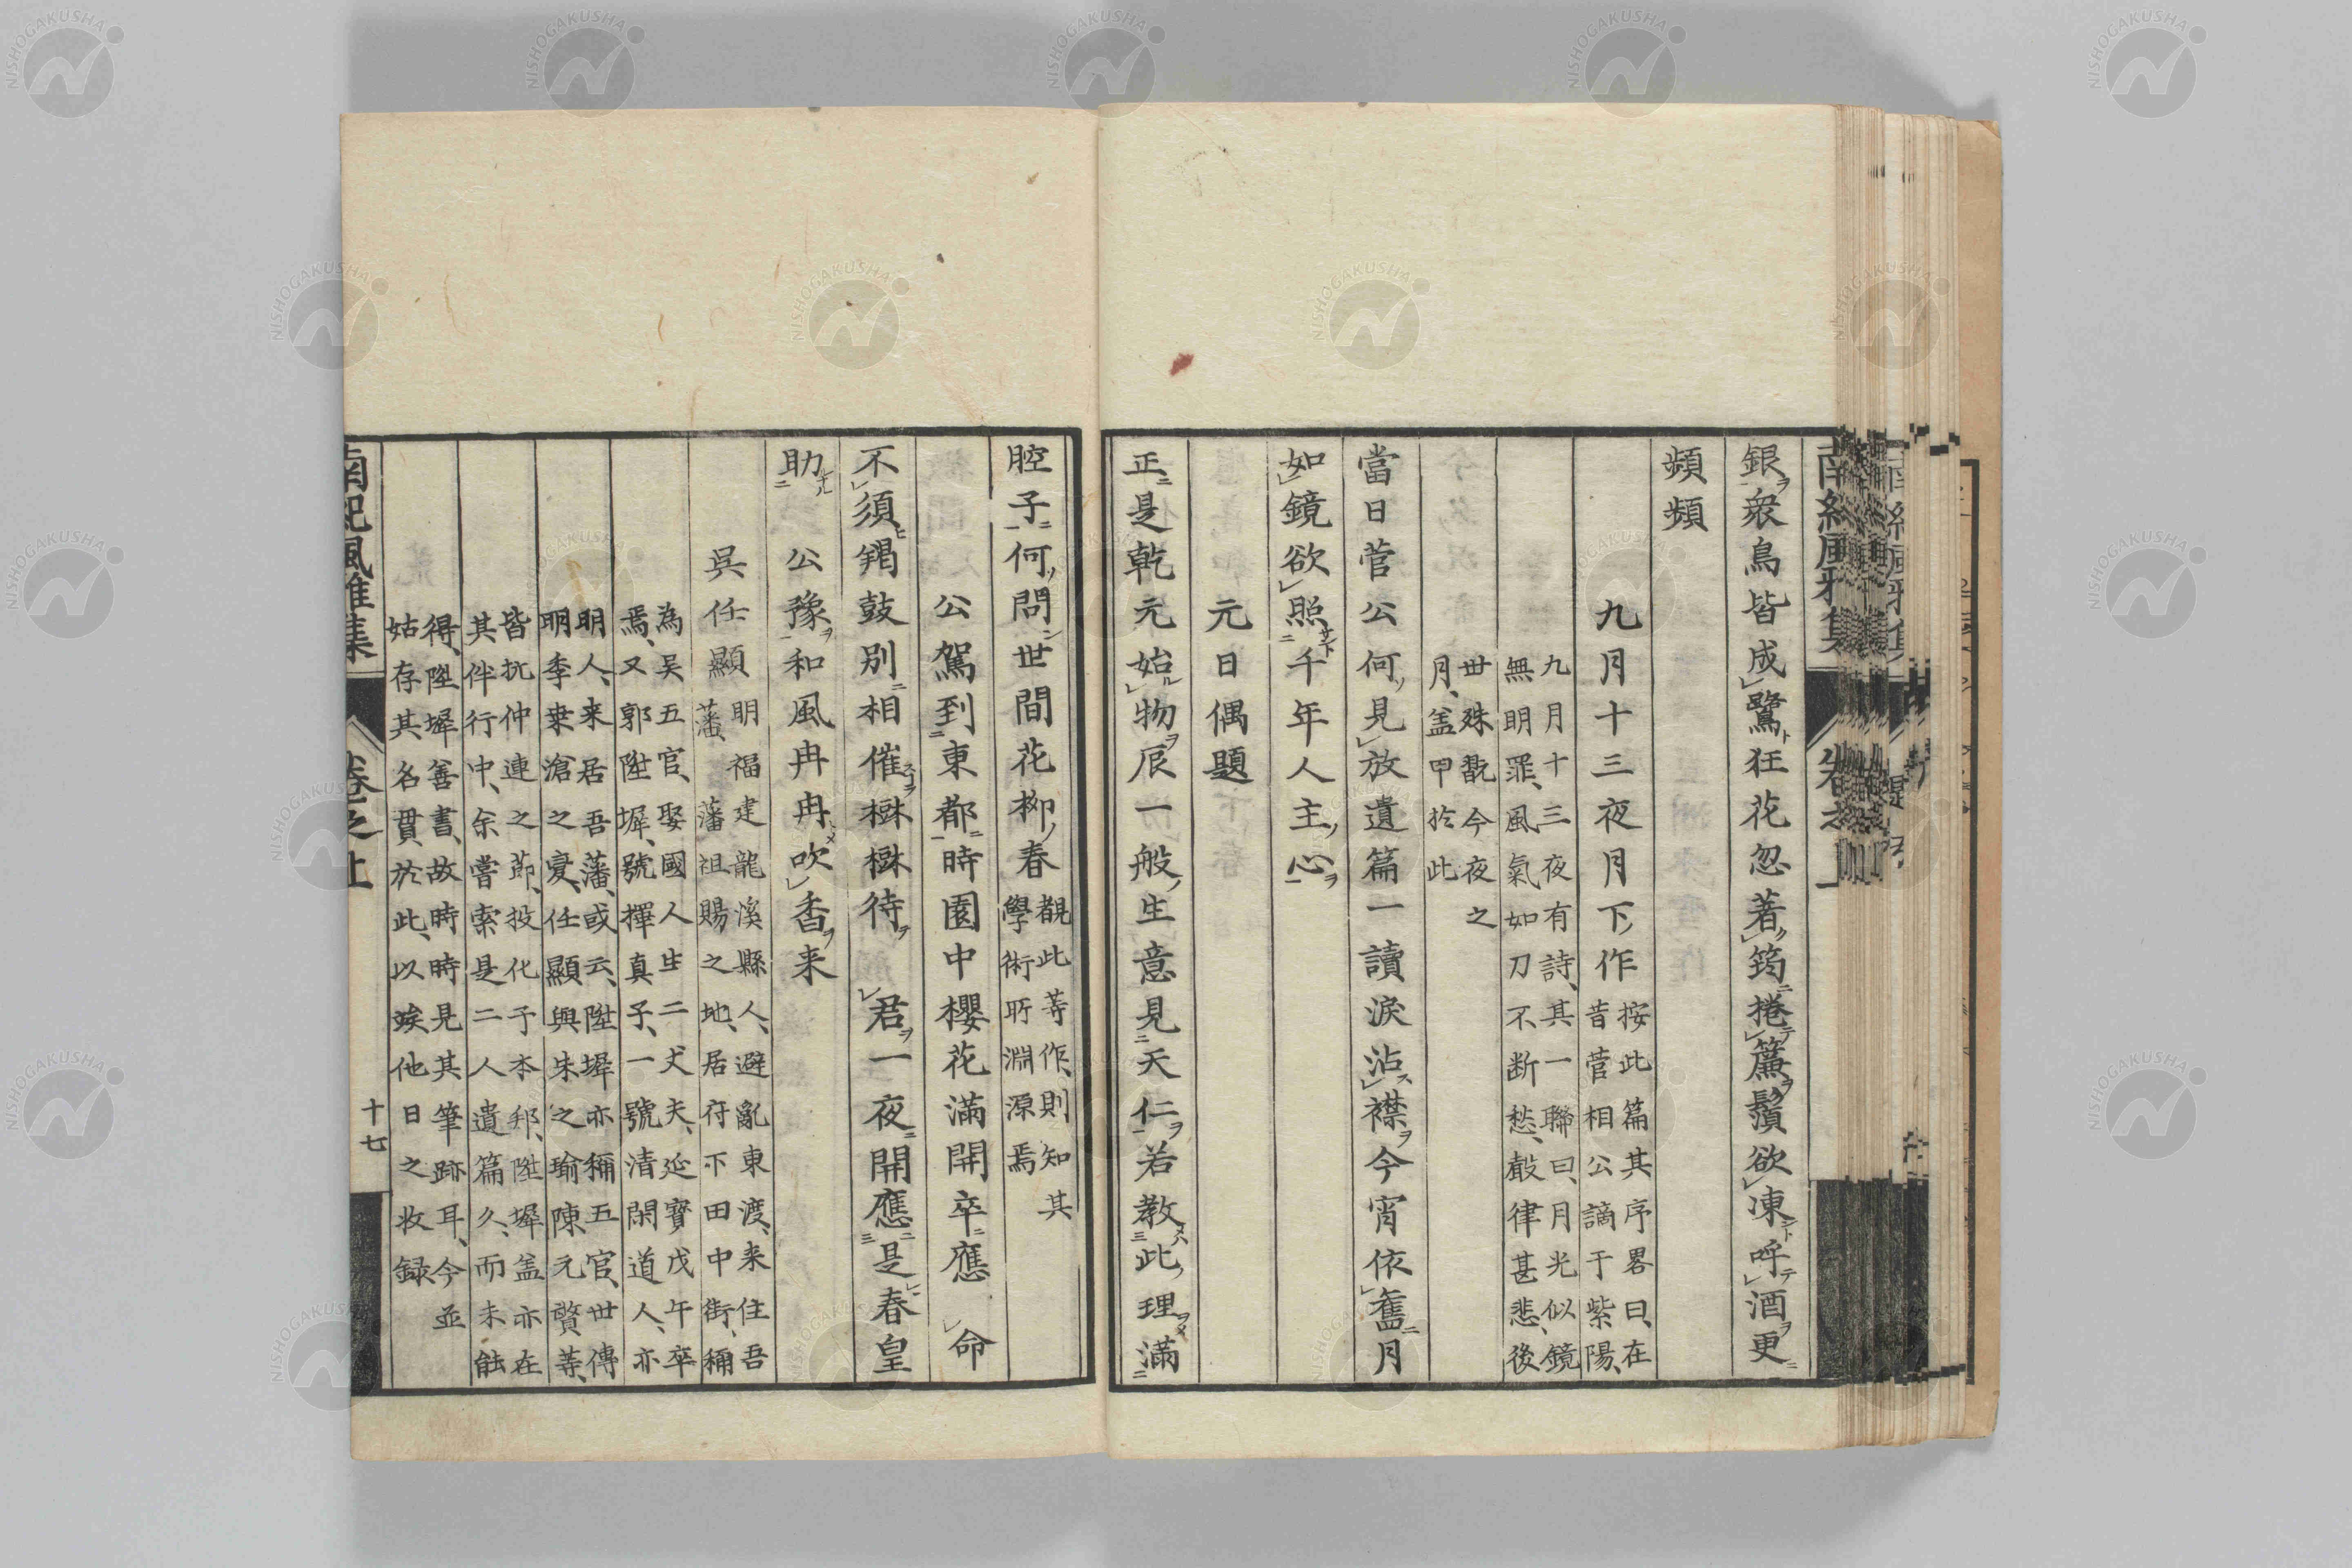 銀衆鳥皆成鷺狂花忽著筠捲簾鬚欲凍呼酒更
頻頻
九月十三夜月下作
按此篇其序畧曰在
昔菅相公謫于紫陽
九月十三夜有詩其一聯曰月光似鏡
無明罪風氣如刀不断愁嚴律甚悲後
世殊翫今夜之
月盖甲於此
當日菅公何見放遺篇一讀淚沾襟今宵依舊月
如鏡欲照千年人主心
元日偶題
正是乾元始物辰一般生意見天仁若教此理滿
腔子何問世間花柳春
觀此等作則知其
學術所淵源焉
公駕到東都時園中櫻花滿開卒應命
不須羯鼓別相催樹樹待君一夜開應是春皇
助公豫和風冉冉吹香来
吳任顯
明福建龍溪縣人避亂東渡来住吾
藩藩祖賜之地居府下田中街稱
為吴五官娶國人生二丈夫延寶戊午卒
焉又郭陞墀號擇真子一號清閑道人亦
明人来居吾藩或云陞墀亦稱五官世傳
明季桑滄之變任顯與朱之瑜陳元贇等
皆抗仲連之節投化于本邦陞墀盖亦在
其伴行中余嘗索是二人遺篇久而未能
得陞墀善書故時時見其筆跡耳今並
姑存其名貫於此以竢他日之收録
南紀風雅集
卷之上
十七